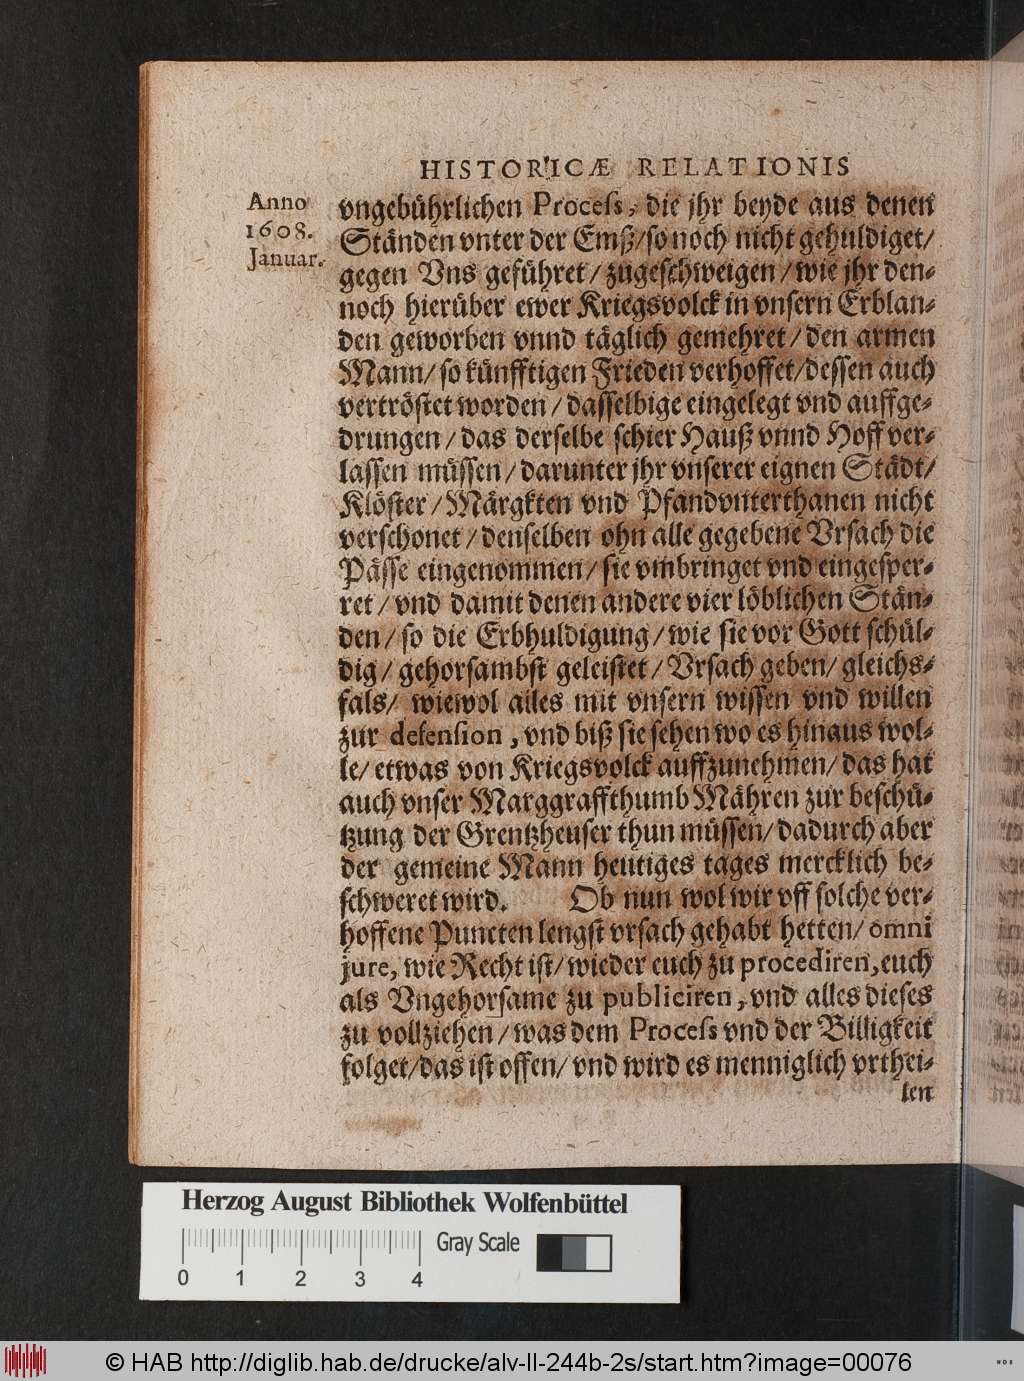 HISTORICÆ RELATIONIS
Anno
1608.
Januar.
vngebührlichen Proceſs, die jhr beyde aus denen
Ständen vnter der Emß/ſo noch nicht gehuldiget/
gegen Vns geführet/zugeſchweigen/wie jhr den-
noch hierüber ewer Kriegsvolck in vnſern Erblan-
den geworben vnnd täglich gemehret/den armen
Mann/ſo künfftigen Frieden verhoffet/deſſen auch
vertröſtet worden/daſſelbige eingelegt vnd auffge-
drungen/das derſelbe ſchier Hauß vnnd Hoff ver-
laſſen müſſen/darunter jhr vnſerer eignen Städt/
Klöſter/Märgkten vnd Pfandvnterthanen nicht
verſchonet/denſelben ohn alle gegebene Vrſach die
Päſſe eingenommen/ſie vmbringet vnd eingeſper-
ret/vnd damit denen andere vier löblichen Stän-
den/ſo die Erbhuldigung/wie ſie vor Gott ſchül-
dig/gehorſambſt geleiſtet/Vrſach geben/gleichs-
fals/ wiewol alles mit vnſern wiſſen vnd willen
zur defenſion, vnd biß ſie ſehen wo es hinaus wol-
le/etwas von Kriegsvolck auffzunehmen/das hat
auch vnſer Marggraffthumb Mähren zur beſchü-
tzung der Grentzheuſer thun müſſen/dadurch aber
der gemeine Mann heutiges tages mercklich be-
ſchweret wird. Ob nun wol wir vff ſolche ver-
hoffene Puncten lengſt vrſach gehabt hetten/omni
jure, wie Recht iſt/wieder euch zu procediren, euch
als Vngehorſame zu publiciren, vnd alles dieſes
zu vollziehen/was dem Proceſs vnd der Billigkeit
folget/das iſt offen/vnd wird es menniglich vrthei-
len
Herzog August Bibliothek Wolfenbüttel
Gray Scale
0 1 2 3 4
© HAB http://diglib.hab.de/drucke/alv-ll-244b-2s/start.htm?image=00076